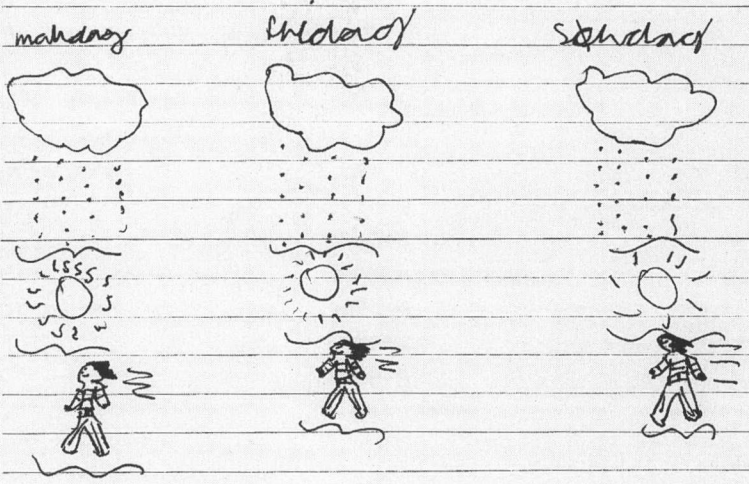 mandag fredag Sondag